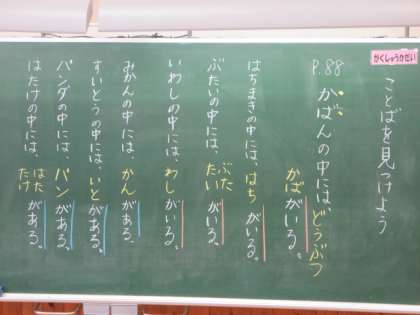 がくしゅうかだい
ことばを見つけよう
P.88
かばんの中には どうぶつ
かばがいる。
はちまきの中には、はちがいる。
ぶたいの中には、ぶた
たいがいる。
いわしの中には、わしがいる。
みかんの中には、かんがある。
すいとうの中には、いとがある。
パンダの中には、パンがある。
はたけの中には、はた
たけがある。